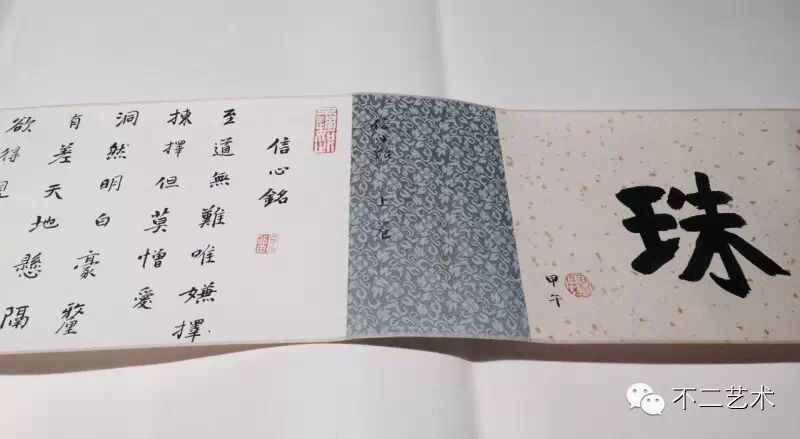 珠
甲午
信心銘 上卷
信心銘
至道無難唯嫌擇
揀擇但莫憎愛
洞然明白豪釐
有差天地懸隔
欲得
不二艺术